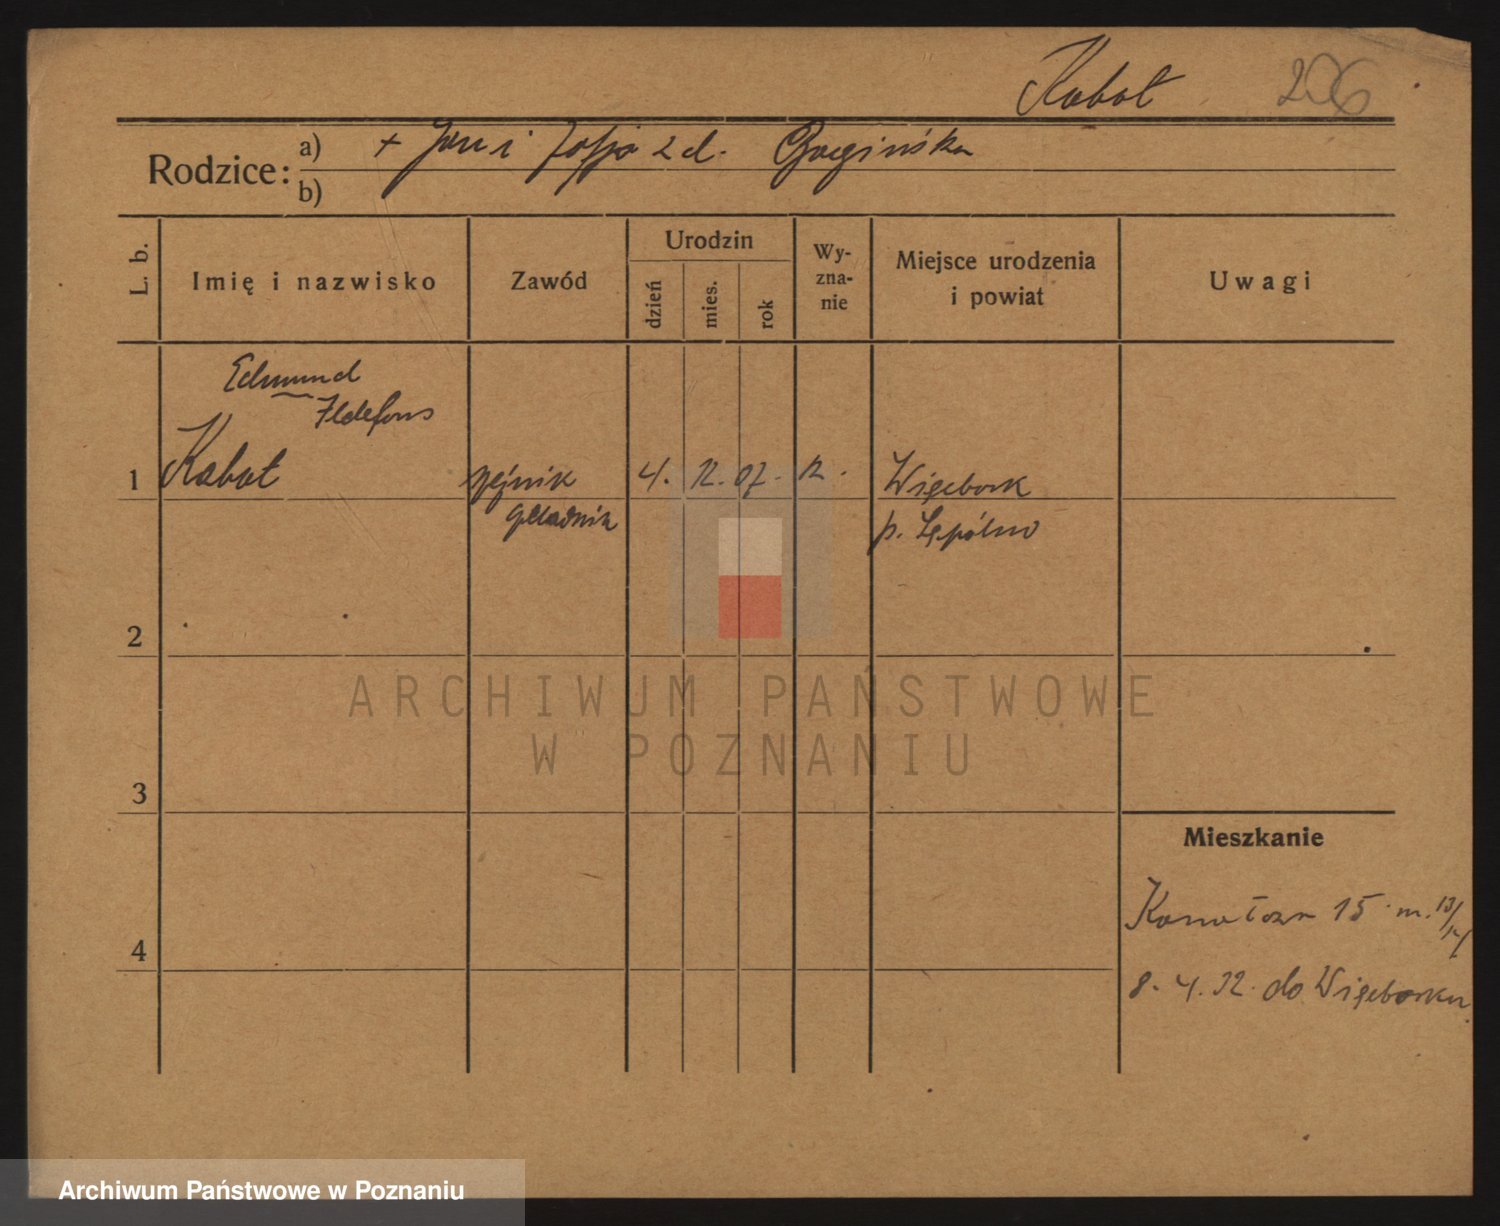 Kabat 206
Rodzice: a) + Jan i Zofja z d. Gagińska
b)
L. b.
Imię i nazwisko
Zawód
Urodzin
dzień
mies.
rok
Wy-
zna-
nie
Miejsce urodzenia
i powiat
Uwagi
Edmund
Ildefons
1 Kabat rzeźnik 4. 12. 07. r. Więcbork
czeladnik p. Sępólno
2
ARCHIWUM PAŃSTWOWE
W POZNANIU
3
Mieszkanie
Kanałowa 15 m. 13/14
4
8. 4. 32. do Więcborku
Archiwum Państwowe w Poznaniu